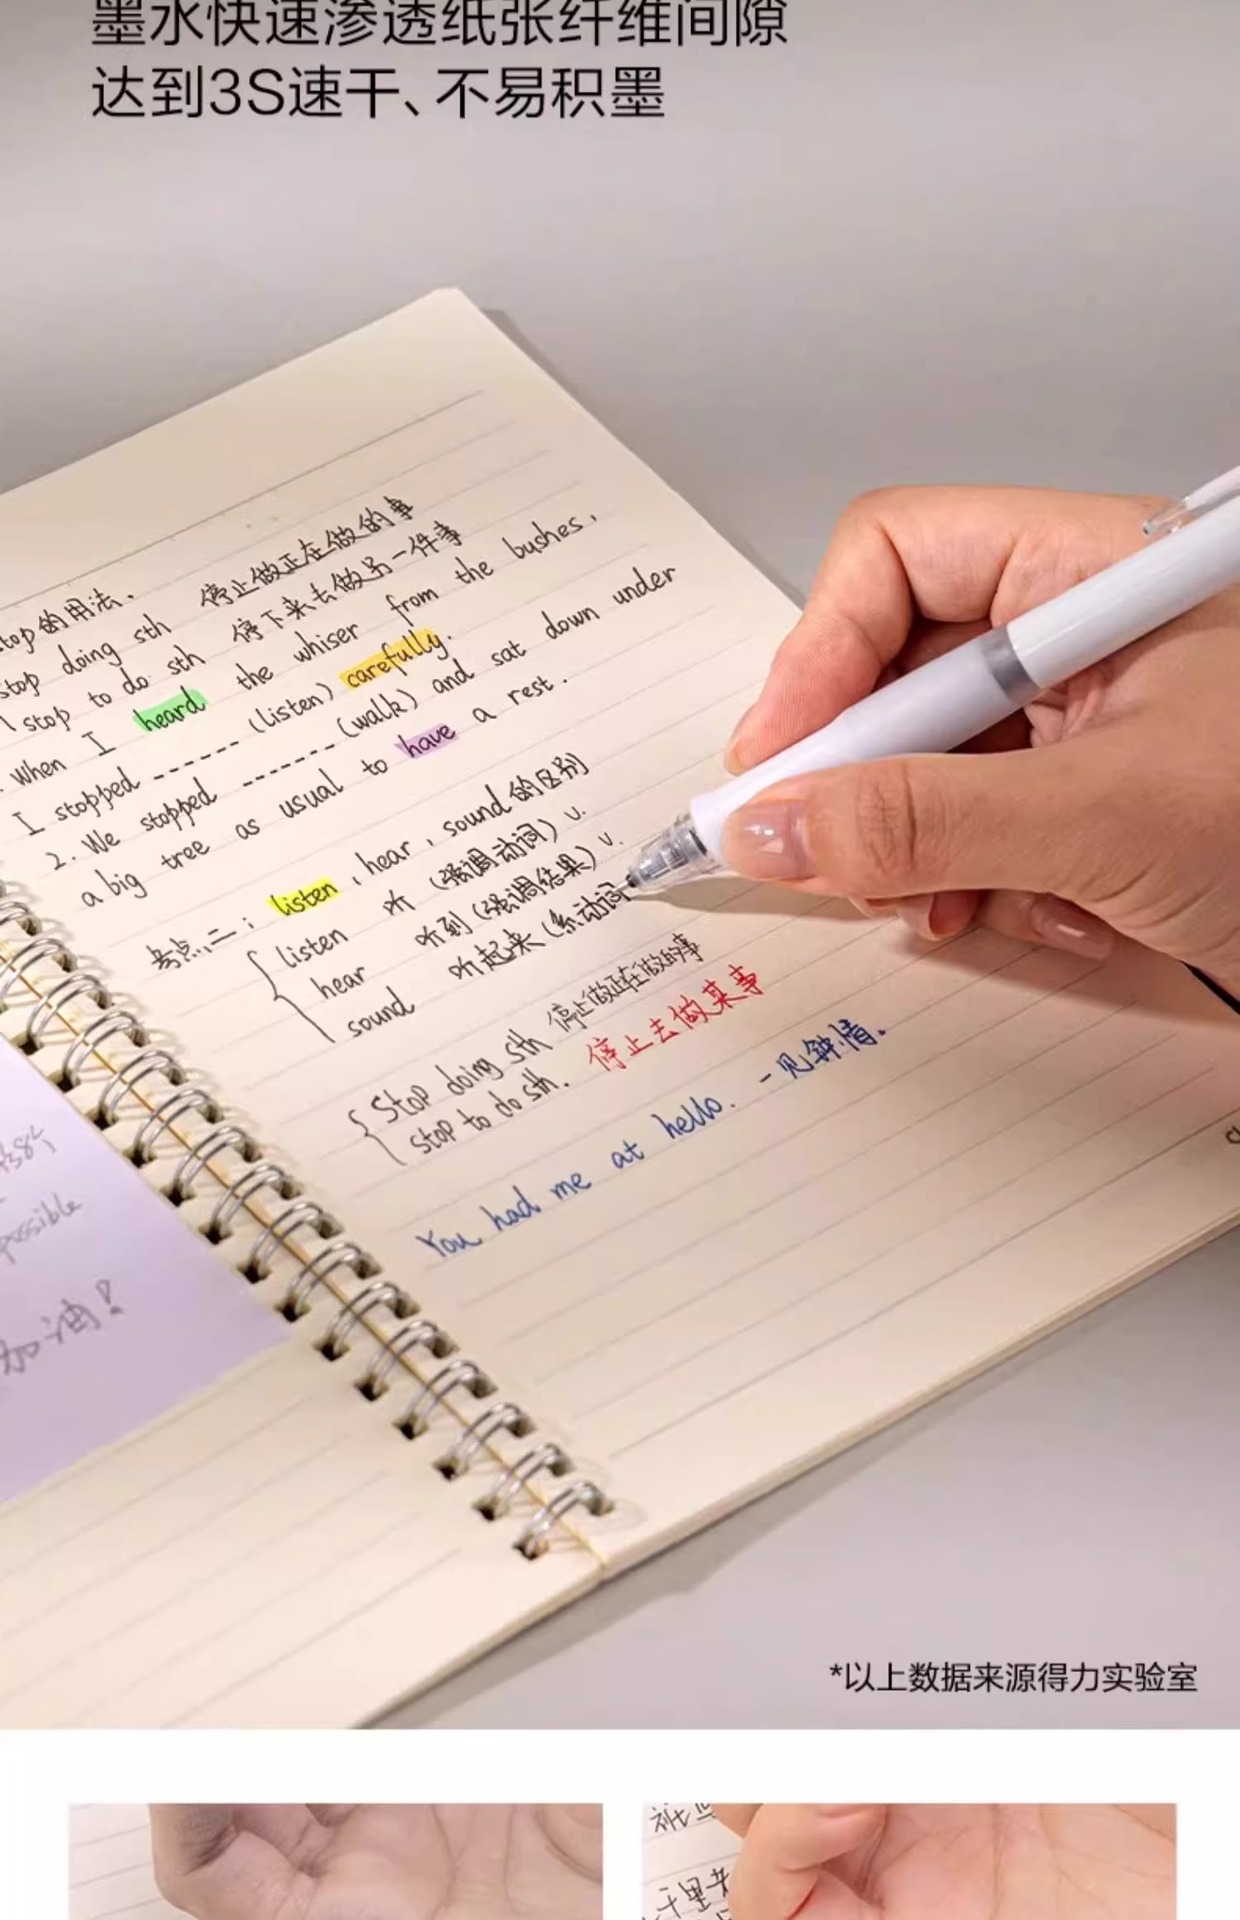 墨水快速渗透纸张纤维间隙
达到3S速干、不易积墨
stop的用法.
stop doing sth 停止做正在做的事
stop to do sth 停下来去做另一件事
When I heard the whiser from the bushes,
I stopped -------- (listen) carefully.
2. We stopped -------- (walk) and sat down under
a big tree as usual to have a rest.
考点二: listen, hear, sound的区别
listen 听 (强调动词) v.
hear 听到 (强调结果) v.
sound 听起来 (系动词
Stop doing sth 停止做正在做的事
stop to do sth. 停止去做某事
You had me at hello. 一见钟情.
possible
加油!
*以上数据来源得力实验室
千里